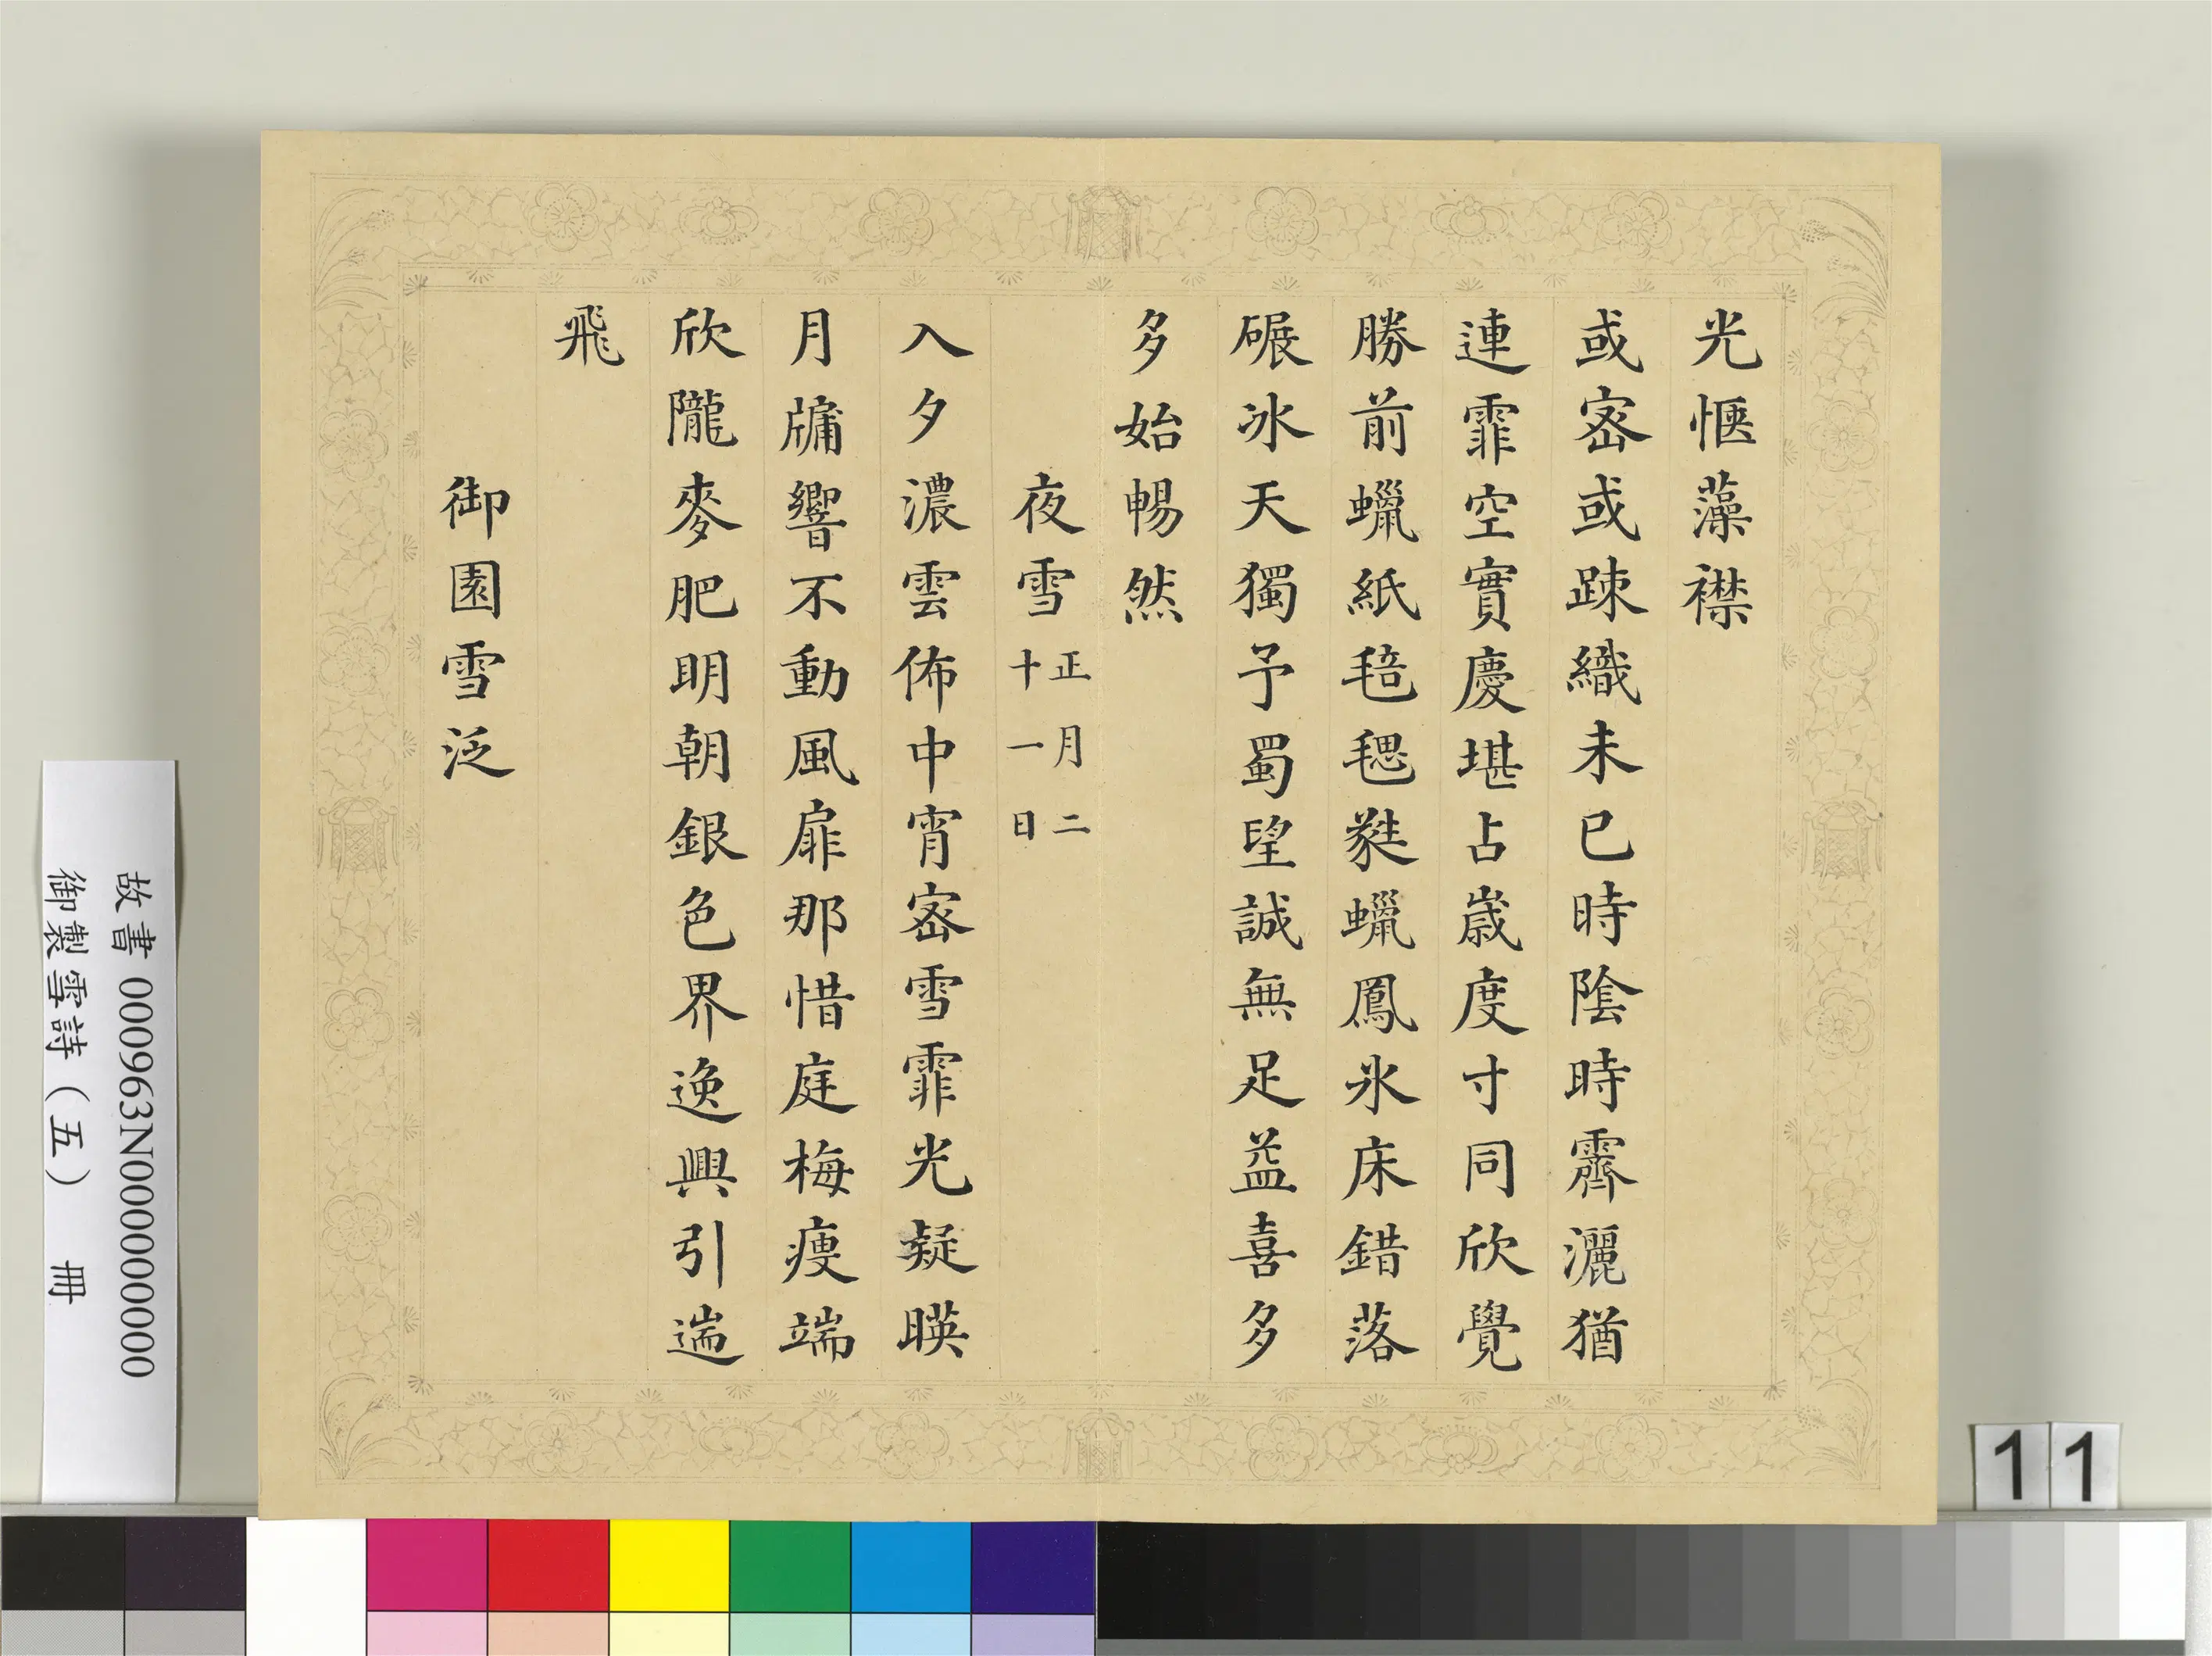 光愜藻襟
或密或疎織未已時陰時霽灑猶
連霏空實慶堪占歲度寸同欣覺
勝前蠟紙毰毸蕤蠟鳳氷床錯落
碾冰天獨予蜀望誠無足益喜多
多始暢然
夜雪正月二
十一日
入夕濃雲佈中宵密雪霏光疑暎
月牗響不動風扉那惜庭梅瘦端
欣隴麥肥明朝銀色界逸興引遄
飛
御園雪泛
故書 000963N000000000
御製雪詩（五） 冊
11